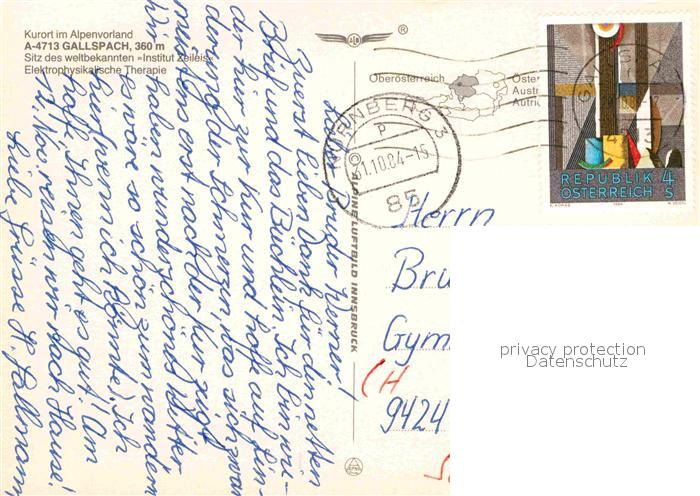 Kurort im Alpenvorland
A-4713 GALLSPACH, 360 m
Sitz des weltbekannten »Institut Zeileis«
Elektrophysikalische Therapie
®
Oberösterreich
Öster
Austr
Autric
NÜRNBERG 3
P
1.10.84-15
85
REPUBLIK 4
ÖSTERREICH S
1984
ALPINE LUFTBILD INNSBRUCK
Bruder Werner!
Zuerst lieben Dank für die netten
Brief und das Büchlein. Ich bin wi-
der hier zur Kur und hoffe auf Lin-
derung der Schmerzen, was sich zwar
meistens erst nach der Kur zeigt.
Wir haben wunderschönes Wetter
es wäre so schön zum wandern
(wenn ich könnte). Ich
hoffe Ihnen geht es gut! Am
Nov. reisen wir nach Hause!
Liebe Grüsse
Herrn
Bru
Gym
(H
9424
privacy protection
Datenschutz